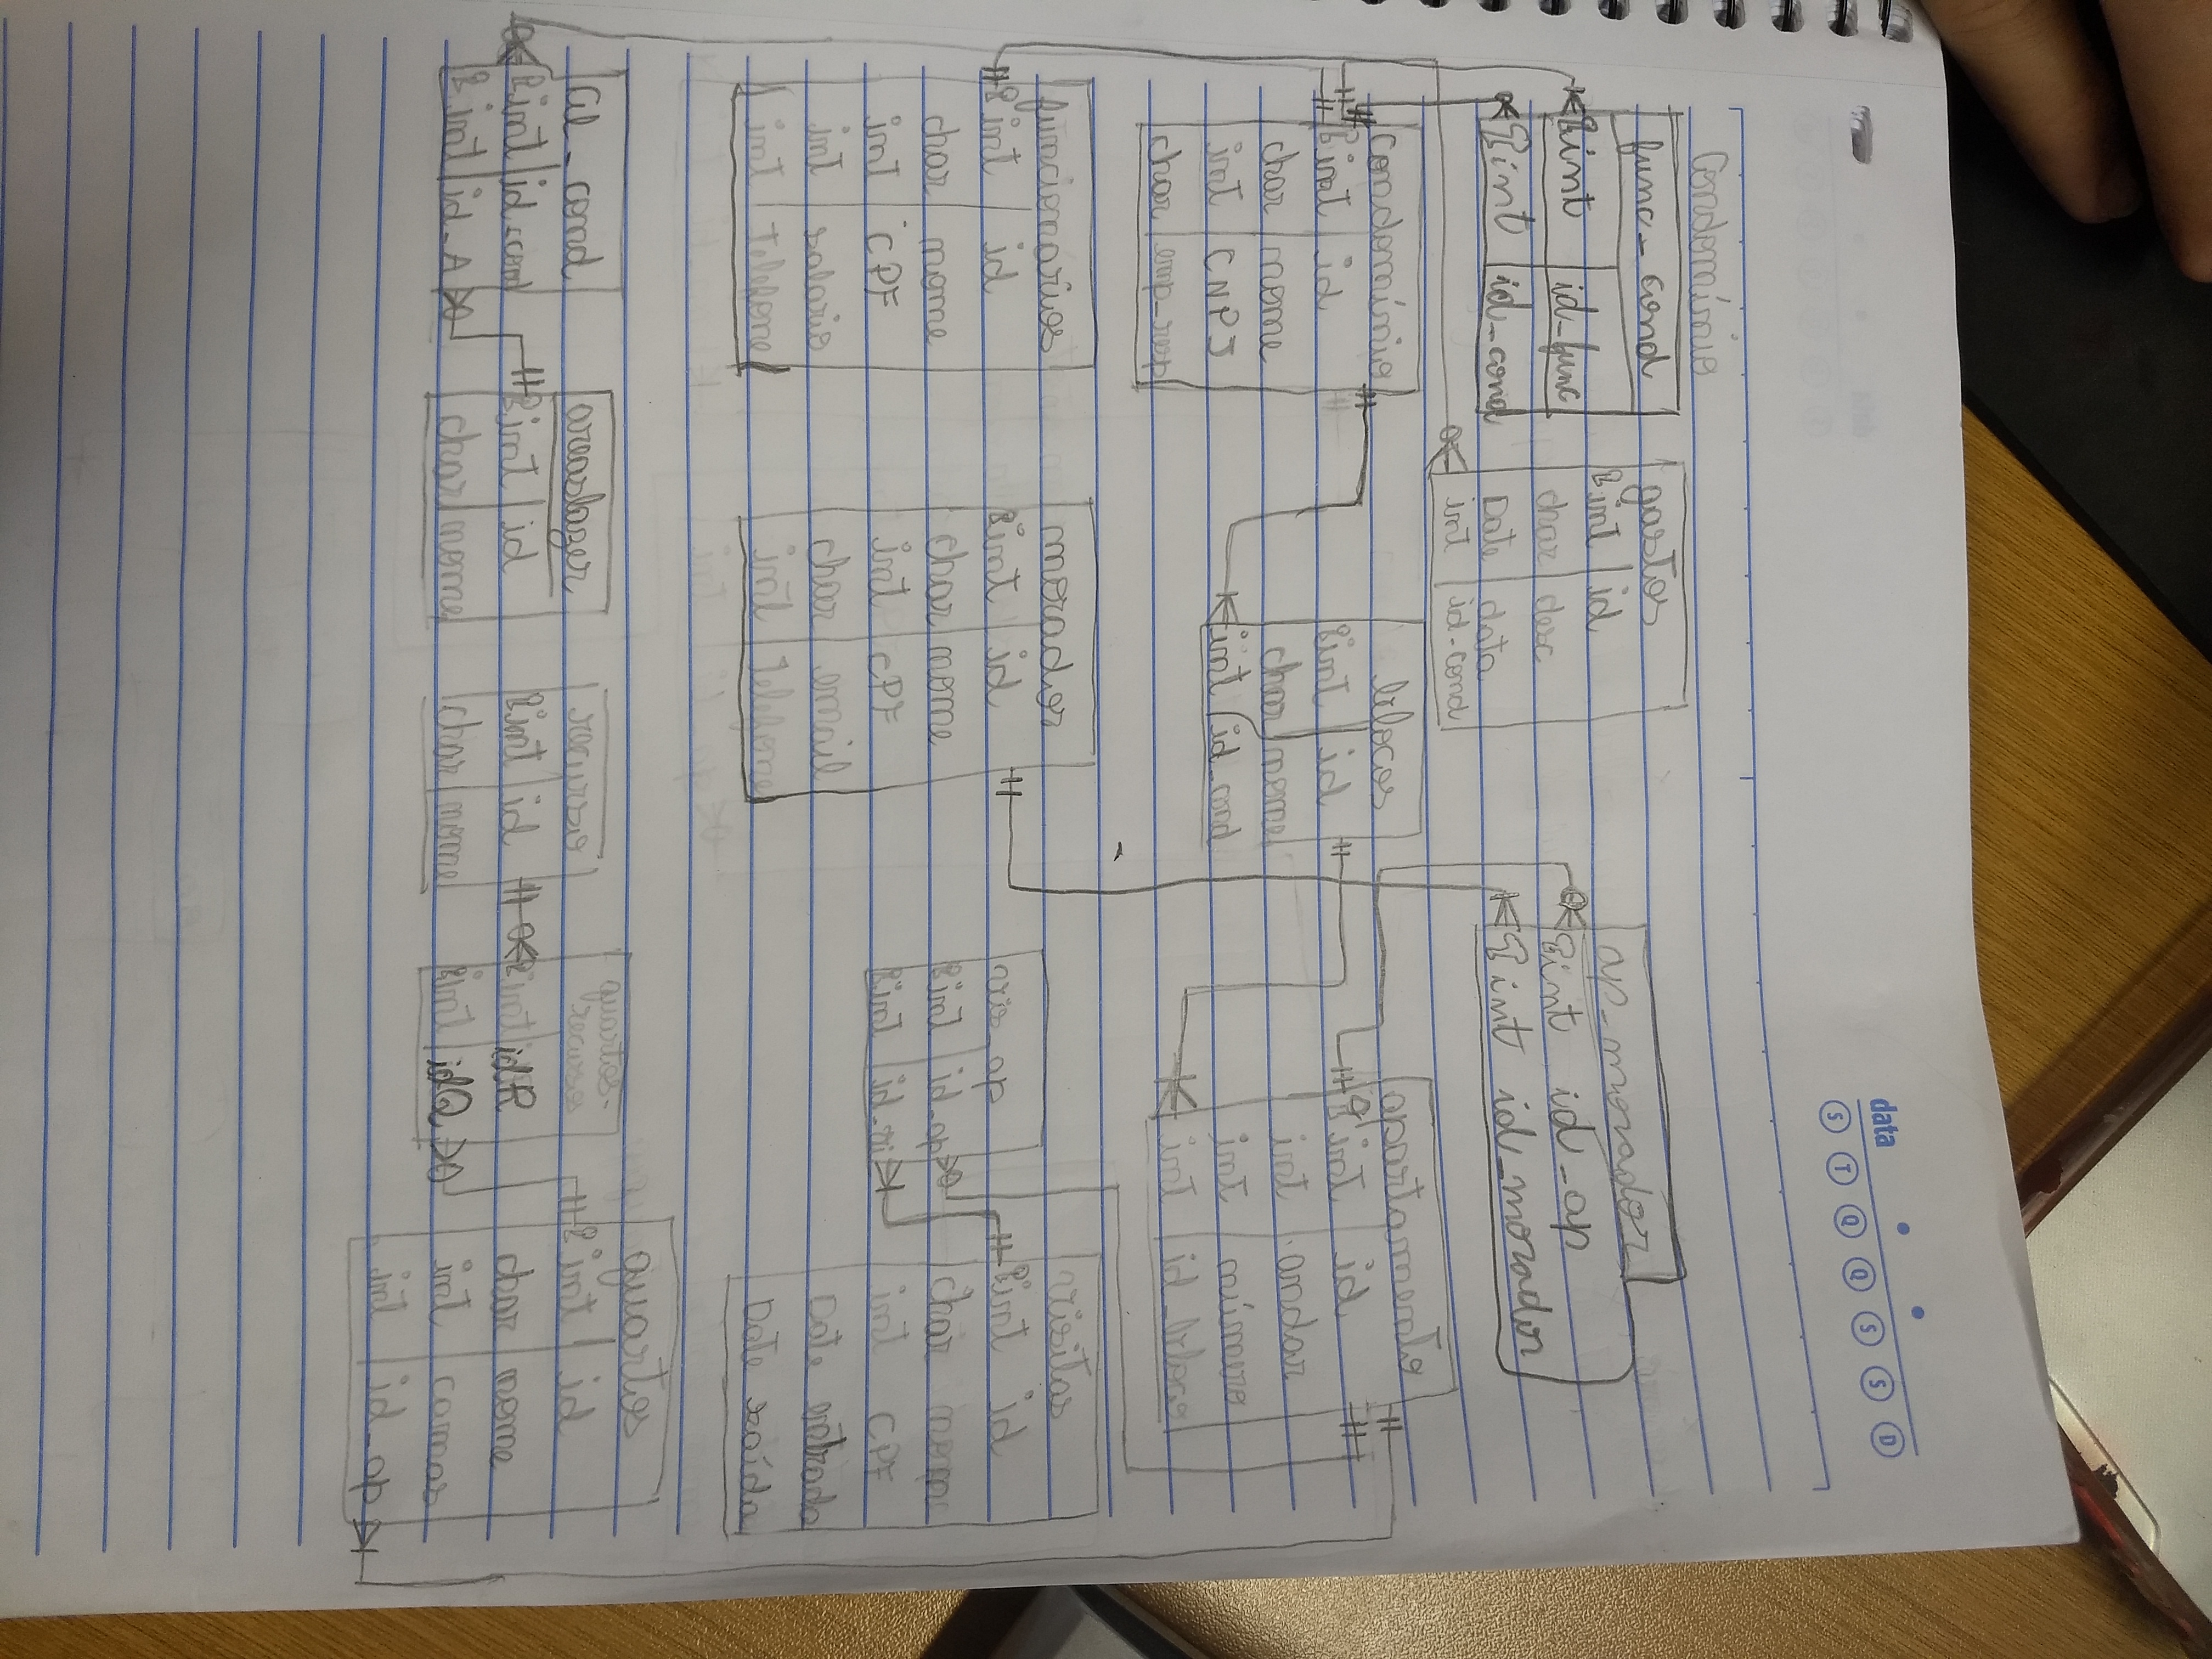 data
S T Q Q S S D
Condomínio
func_cond
int id_func
int id_cond
gastos
int id
char desc
Date data
int id_cond
ap_morador
int id_ap
int id_morador
condomínio
int id
char nome
int CNPJ
char emp_resp
blocos
int id
char nome
int id_cond
apartamento
int id
int andar
int número
int id_bloco
funcionários
int id
char nome
int CPF
int salário
int telefone
morador
int id
char nome
int CPF
char email
int telefone
vis_ap
int id_ap
int id_vi
visitas
int id
char nome
int CPF
Date entrada
Date saída
al_cond
int id_cond
int id_A
areaslazer
int id
char nome
recurso
int id
char nome
quartos-
recursos
int idR
int idQ
quartos
int id
char nome
int camas
int id_ap